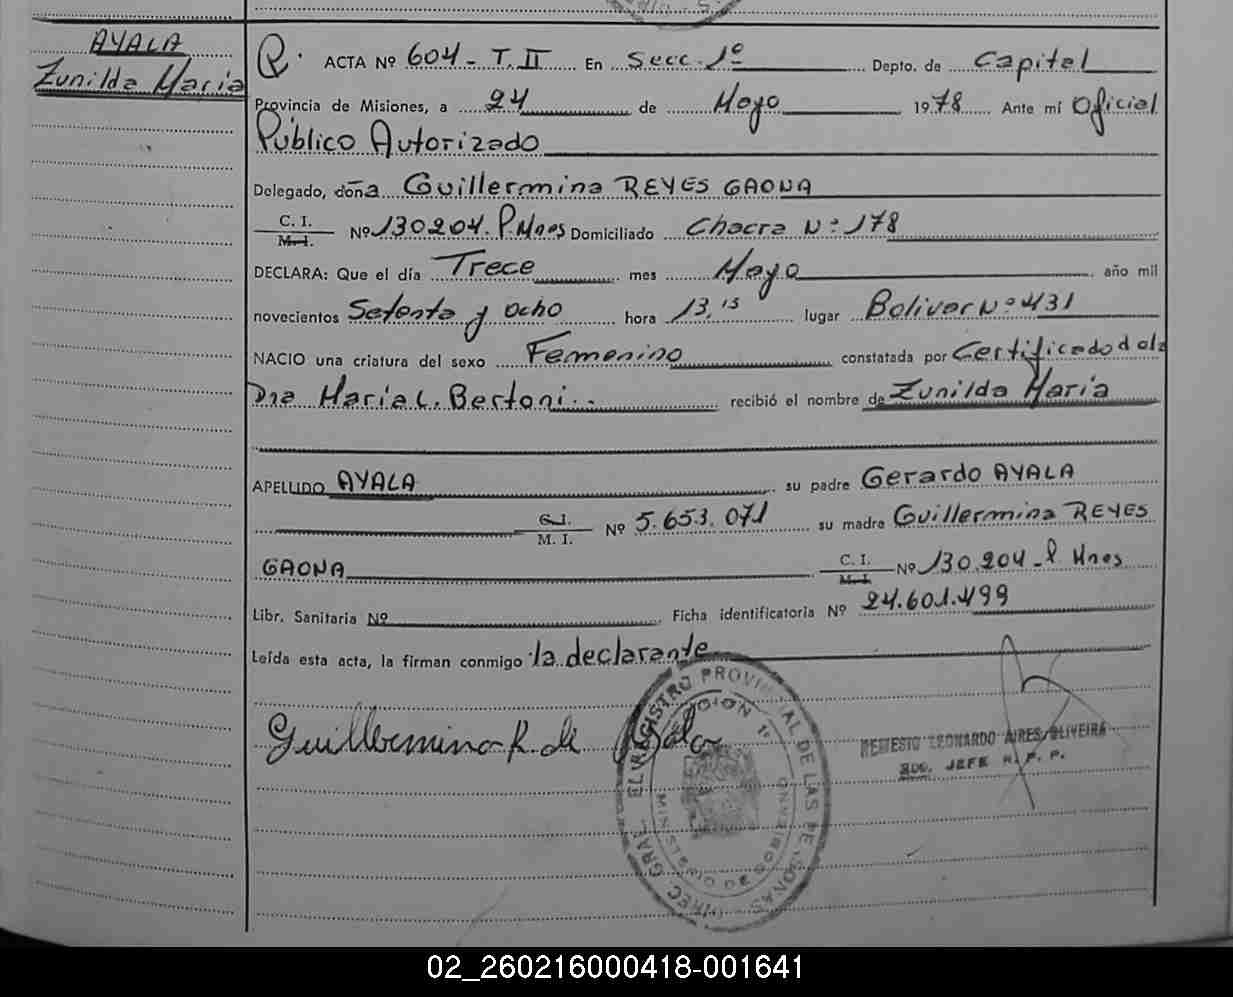 AYALA
Zunilda Maria
R. ACTA Nº 604 - T. II En Secc. 1º Depto. de Capital
Provincia de Misiones, a 24 de Mayo 1978 Ante mí Oficial
Público Autorizado
Delegado, doña Guillermina REYES GAONA
C. I. M. I. Nº 130204. P. Mnes Domiciliado Chacra Nº 178
DECLARA: Que el día Trece mes Mayo año mil
novecientos Setenta y ocho hora 13,15 lugar Bolivar Nº 431
NACIO una criatura del sexo Femenino constatada por Certificado de la
Dra Maria L. Bertoni.. recibió el nombre de Zunilda Maria
APELLIDO AYALA su padre Gerardo AYALA
C. I. M. I. Nº 5.653.071 su madre Guillermina REYES
GAONA C. I. M. I. Nº 130.204 - P. Mnes
Libr. Sanitaria Nº Ficha identificatoria Nº 24.601.499
Leída esta acta, la firman conmigo la declarante
Guillermina R. de Ayala
REGISTRO PROVINCIAL DE LAS PERSONAS
LEONARDO AIRES OLIVEIRA
JEFE R. P. P.
02_260216000418-001641